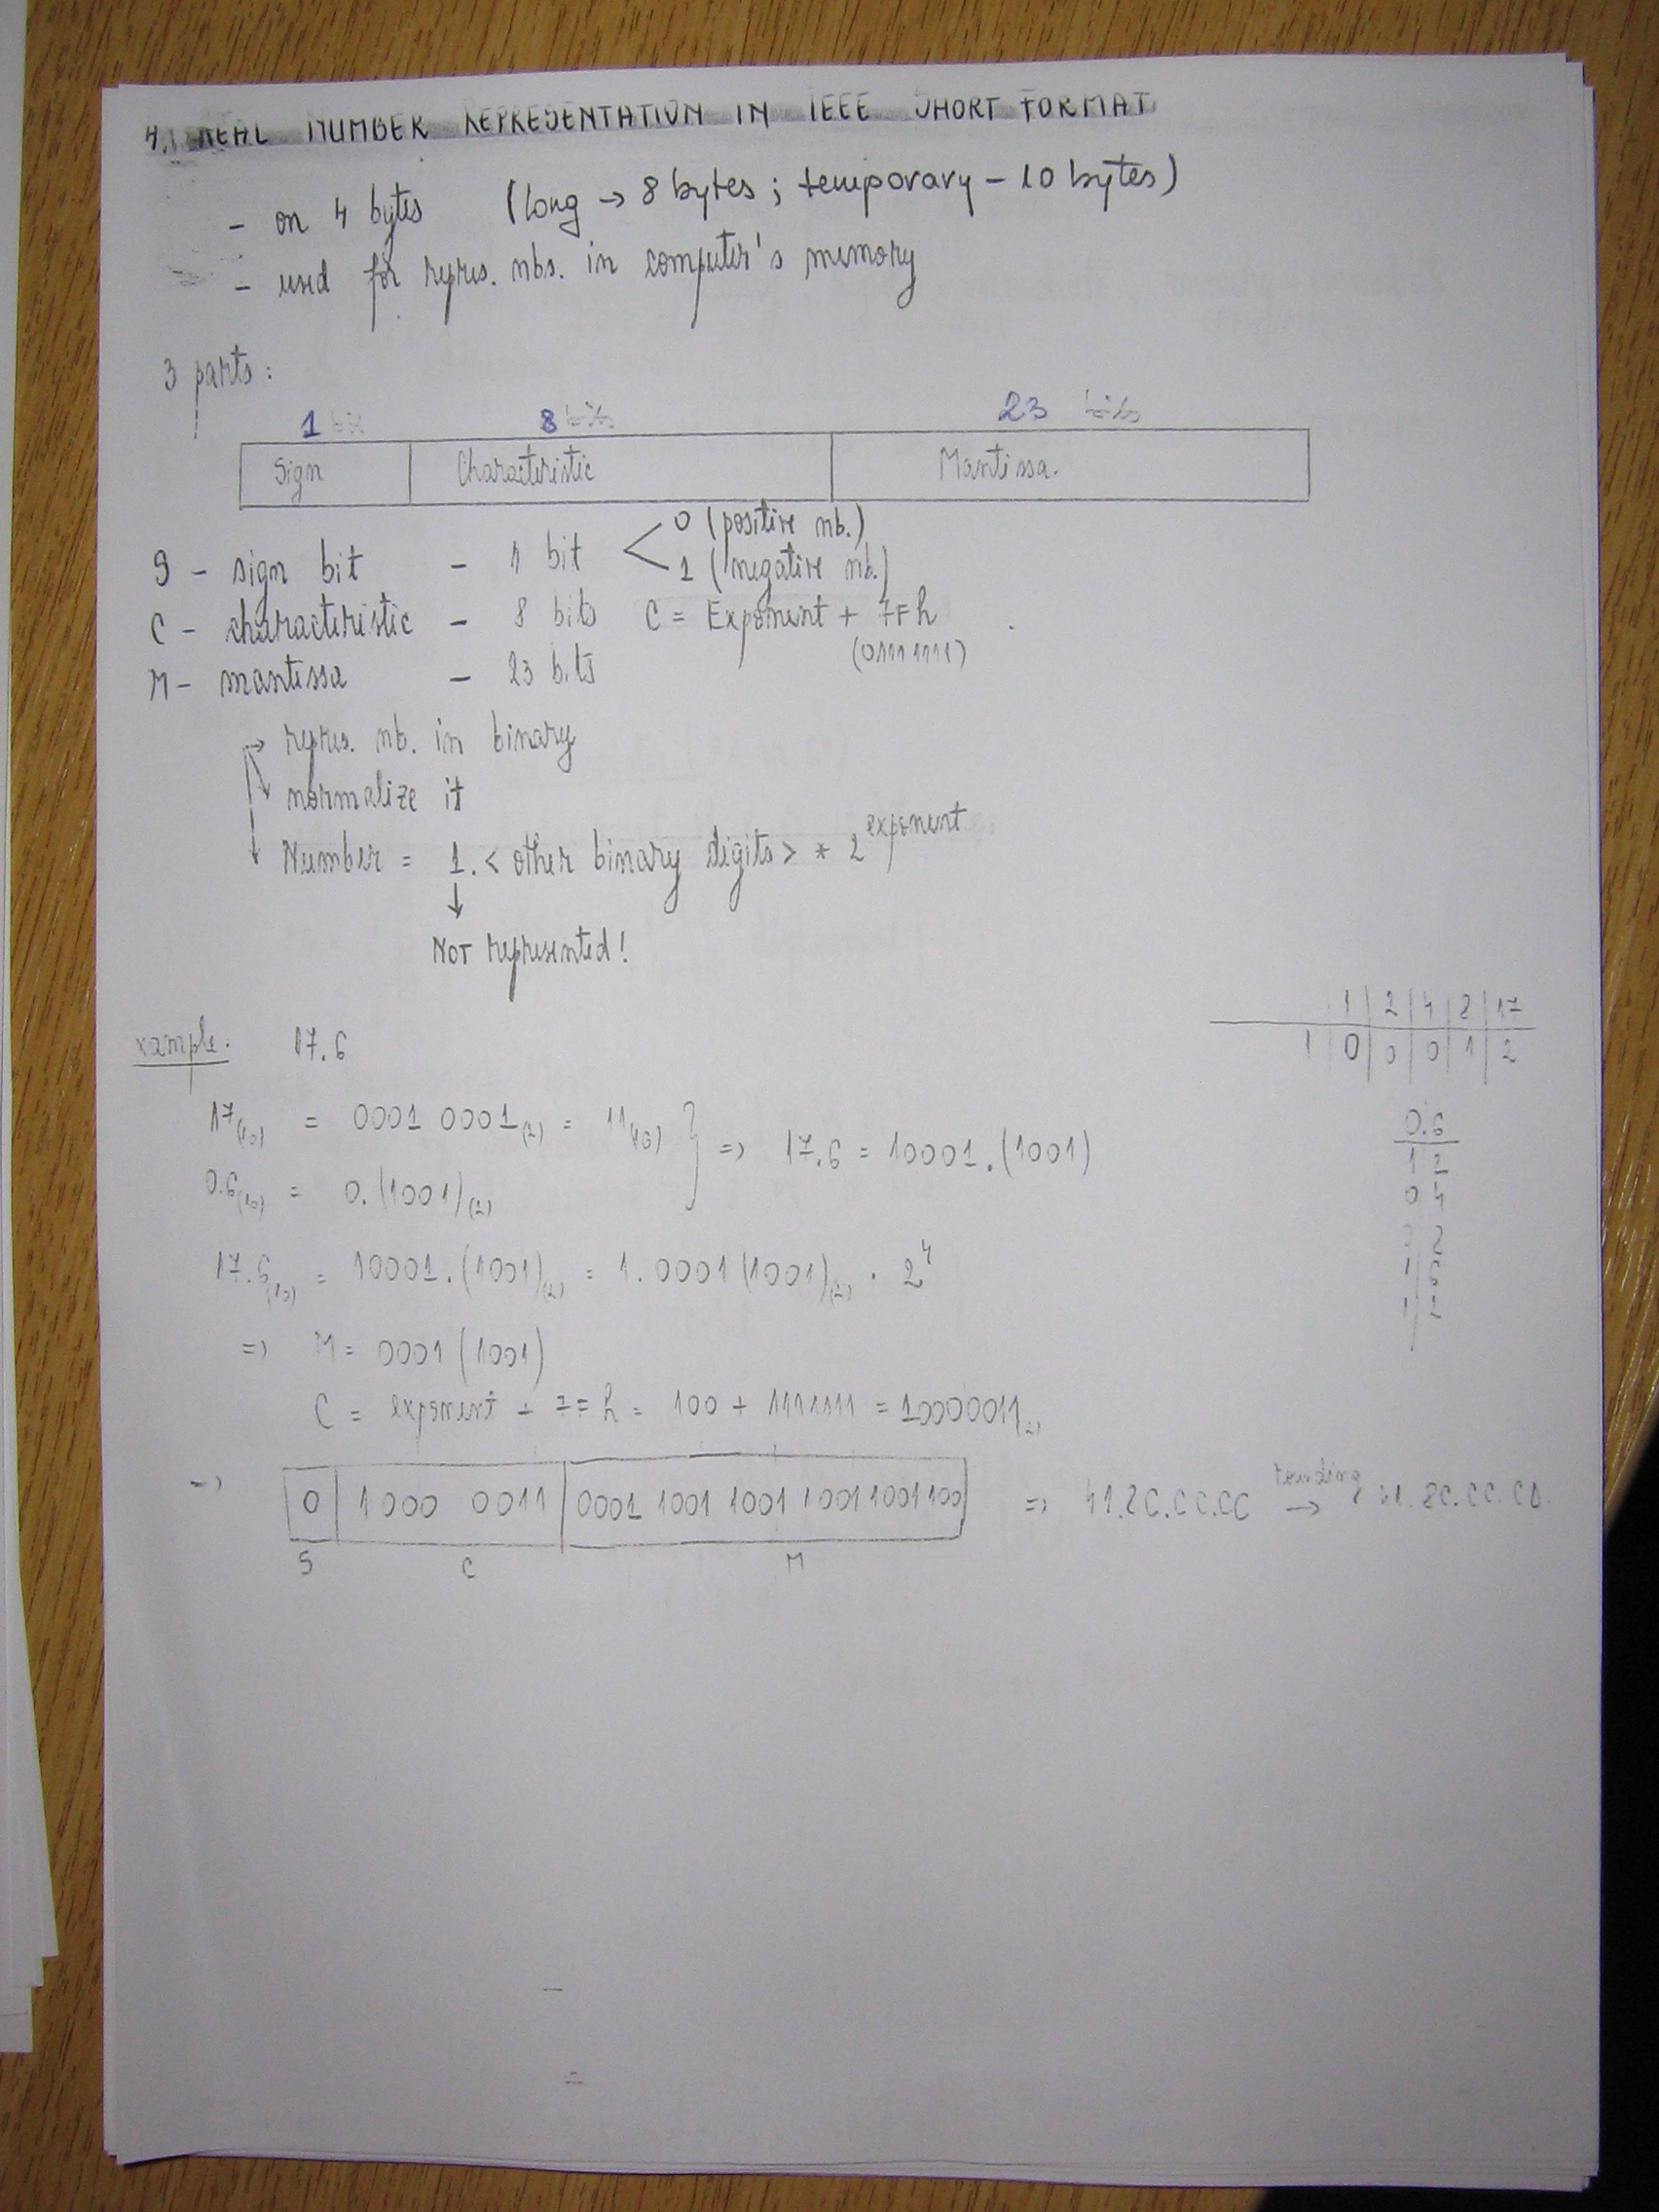 4. REAL NUMBER REPRESENTATION IN IEEE SHORT FORMAT
- on 4 bytes (long → 8 bytes ; temporary - 10 bytes)
- used for repres. nbs. in computer's memory
3 parts :
1 bit 8 bits 23 bits
Sign Characteristic Mantissa.
S - sign bit - 1 bit < 0 (positive nb.)
1 (negative nb.)
C - characteristic - 8 bits C = Exponent + 7F h
(01111111)
M - mantissa - 23 bits
→ repres. nb. in binary
normalize it
Number = 1. < other binary digits > * 2^exponent
↓
NOT represented!
1 | 2 | 4 | 8 | 17
1 | 0 | 0 | 0 | 1 | 2
xample: 17.6
17(10) = 0001 0001(2) = 11(16) } => 17.6 = 10001.(1001)
0.6(10) = 0.(1001)(2)
0.6
1 2
0 4
0 2
1 6
1 2
17.6(10) = 10001.(1001)(2) = 1.0001(1001)(2) . 2^4
=> M = 0001(1001)
C = exponent + 7F h = 100 + 1111111 = 10000011(2)
=> 0 | 1000 0011 | 0001 1001 1001 1001 1001 100 => 41.8C.CC.CC rounding → 41.8C.CC.CD.
S C M